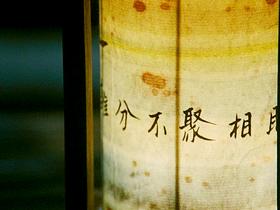 分不聚相